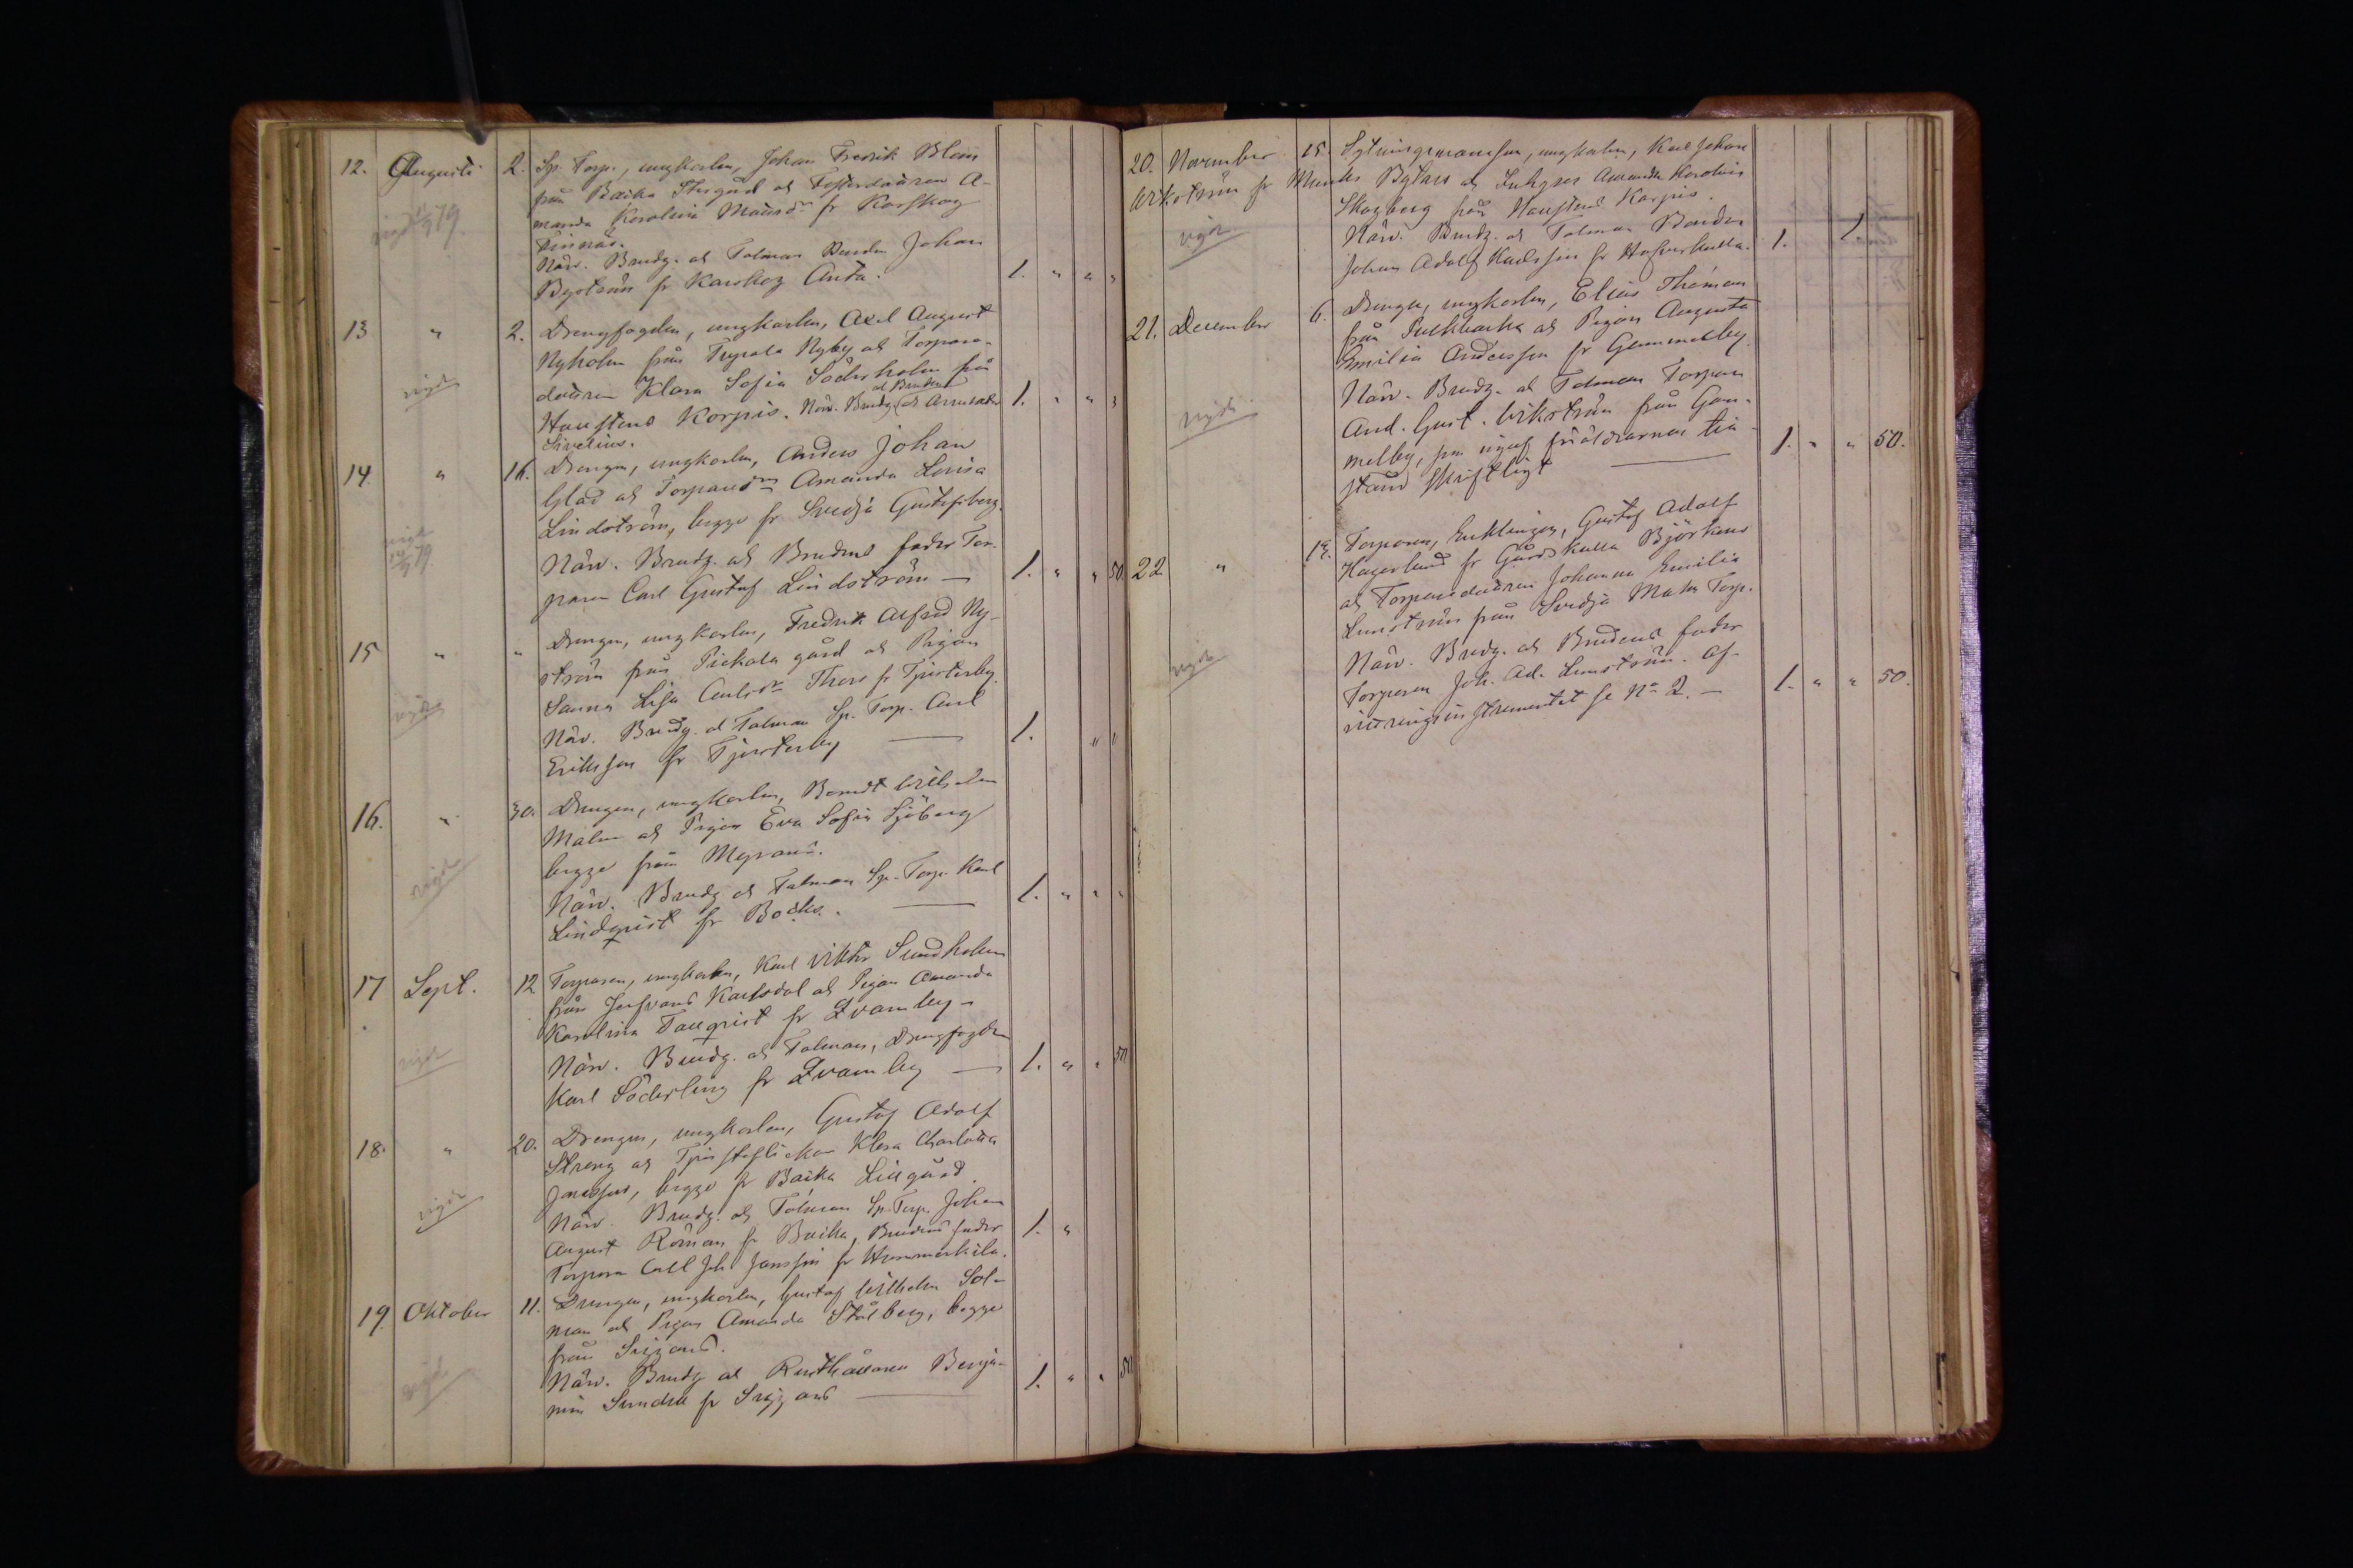 12. Augusti 2. Sp. Torp., ungkarlen, Johan Fredrik Blom
från Backa Storgård och Fosterdottren A-
manda Karolina Mattsdr fr Karskog
vigd 79.
Finnäs.
Närv. Brudg. och Talman Bonden Johan
Byström fr Karskog Antti. 1. " " "
13 " 2. Drengfogden, ungkarlen, Axel August
Nyholm från Nyby och Torpare-
dottren Klara Sofia Söderholm från
vigde
Haustens Korpis. Närv. Brudg. och Brudens 1. " " "
Sivelius.
14. " 16. Drengen, ungkarlen, Anders Johan
Glad och Torparedrn Amanda Lovisa
Lindström, begge fr Svedja Gustafsberg.
vigde 79
Närv. Brudg. och Brudens fader Tor-
paren Carl Gustaf Lindström — 1. " " 50.
15 " " Drengen, ungkarlen, Fredrik Alfred Ny-
ström från Pickala gård och Pigan
Sanna Lisa Carlsdr Thors fr Tjusterby.
vigde
Närv. Brudg. och Talman Sp. Torp. Carl
Eriksson fr Tjusterby — 1. " "
16. " 30. Drengen, ungkarlen, Berndt Wilhelm
Malm och Pigan Eva Sofia Sjöberg
begge från Myrans.
vigde
Närv. Brudg och Talman Sp. Torp. Karl
Lindqvist fr Backs. — 1. " " "
17 Sept. 12 Torparen, ungkarlen, Karl Viktor Sundholm
från Karlsdal och Pigan Amanda
Karolina Tallqvist fr Kvarnby —
vigde
Närv. Brudg. och Talman, Drengfogden
Karl Söderling fr Kvarnby — 1. " " 50
18. " 20. Drengen, ungkarlen, Gustaf Adolf
Streng och Tjensteflickan Klara Charlotta
Jansson, begge fr Backa Lillgård.
vigde
Närv. Brudg. och Talman Sp. Torp. Johan
August Roman fr Backa, Brudens fader 1. "
Torparen Carl Joh Jansson fr
19. Oktober 11. Drengen, ungkarlen, Gustaf Wilhelm Sol-
man och Pigan Amanda Stålberg, begge
från Siggans.
vigde
Närv. Brudg och Rusthållaren Benja-
min Sundell fr Siggans — 1. " " 50
20. November 15. Sytningsmanson, ungkarlen, Karl Johan
Wikström fr Munks Bylars och Inhyses Amanda Karolina
Skogberg från Haustens Karpis.
vigde
Närv. Brudg. och Talman Bonden
Johan Adolf Karlsson fr 1. 1.
21. December 6. Drengen, ungkarlen, Elias Thoman
från Purkbacka och Pigan Augusta
Emilia Andersson fr Gammelby.
Närv. Brudg. och Talman Torparen
vigde
And. Gust. Wikström från Gam-
melby, som uppgaf föräldrarnas till-
stånd skriftligt — 1. " " 50.
22 " 19. Torparen, Enklingen, Gustaf Adolf
Hagerlund fr Gårdskulla Björkens
och Torparedottren Johanna Emilia
Lunström från Svedja Malm Torp.
vigde
Närv. Brudg. och Brudens fader
Torparen Joh. Ad. Lunström. Af-
vittringsinstrumentet se No 2. — 1. " " 50.